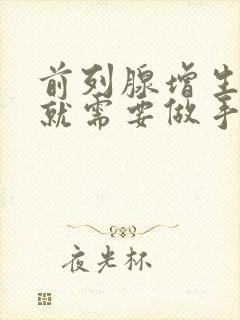 前列腺增生
就需要做手
夜光杯